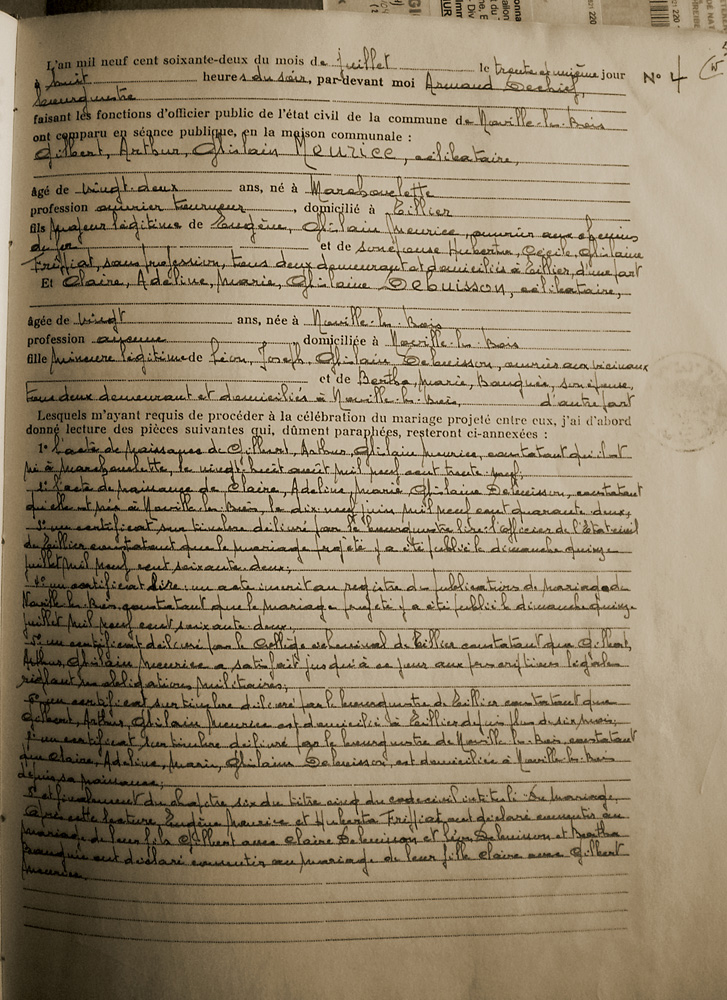 L'an mil neuf cent soixante-deux du mois de juillet le trente et unième jour
N° 4
à huit heures du soir, par-devant moi Armand Dechief,
bourgmestre
faisant les fonctions d'officier public de l'état civil de la commune de Noville-les-Bois
ont comparu en séance publique, en la maison communale :
Gilbert, Arthur, Ghislain Meurice, célibataire,
âgé de vingt-deux ans, né à Marchovelette
profession ouvrier tourneur, domicilié à Tillier
fils majeur légitime de Eugène, Ghislain Meurice, ouvrier aux chemins
du fer et de son épouse Huberta, Cécile, Ghislaine
Friffiat, sans profession, tous deux demeurant et domiciliés à Tillier, d'une part
Et Claire, Adeline, Marie, Ghislaine Debuisson, célibataire,
âgée de vingt ans, née à Noville-les-Bois
profession domiciliée à Noville-les-Bois
fille mineure légitime de Léon, Joseph, Ghislain Debuisson, ouvrier aux vicinaux
et de Bertha, Marie, Bauquin, son épouse,
tous deux demeurant et domiciliés à Noville-les-Bois, d'autre part
Lesquels m'ayant requis de procéder à la célébration du mariage projeté entre eux, j'ai d'abord
donné lecture des pièces suivantes qui, dûment paraphées, resteront ci-annexées :
1° l'acte de naissance de Gilbert, Arthur, Ghislain Meurice, constatant qu'il est
né à Marchovelette, le vingt-huit août mil neuf cent trente-neuf;
2° l'acte de naissance de Claire, Adeline, Marie, Ghislaine Debuisson, constatant
qu'elle est née à Noville-les-Bois, le dix-neuf juin mil neuf cent quarante-deux;
3° un certificat sur timbre délivré par le bourgmestre lire: l'officier de l'Etat civil
de Tillier constatant que le mariage projeté y a été publié le dimanche quinze
juillet mil neuf cent soixante-deux;
4° un certificat lire: un acte inscrit au registre des publications de mariage de
Noville-les-Bois constatant que le mariage projeté y a été publié le dimanche quinze
juillet mil neuf cent soixante-deux;
5° un certificat délivré par le Collège échevinal de Tillier constatant que Gilbert,
Arthur, Ghislain Meurice a satisfait jusqu'à ce jour aux prescriptions légales
réglant les obligations militaires;
6° un certificat sur timbre délivré par le bourgmestre de Tillier constatant que
Gilbert, Arthur, Ghislain Meurice est domicilié à Tillier depuis plus de six mois;
7° un certificat sur timbre délivré par le bourgmestre de Noville-les-Bois, constatant
que Claire, Adeline, Marie, Ghislaine Debuisson, est domiciliée à Noville-les-Bois
depuis sa naissance;
8° et finalement du chapitre six du titre cinq du code civil intitulé: Du Mariage,
Après cette lecture, Eugène Meurice et Huberta Friffiat, ont déclaré consentir au
mariage de leur fils Gilbert avec Claire Debuisson et Léon Debuisson et Bertha
Bauquin ont déclaré consentir au mariage de leur fille Claire avec Gilbert
Meurice.